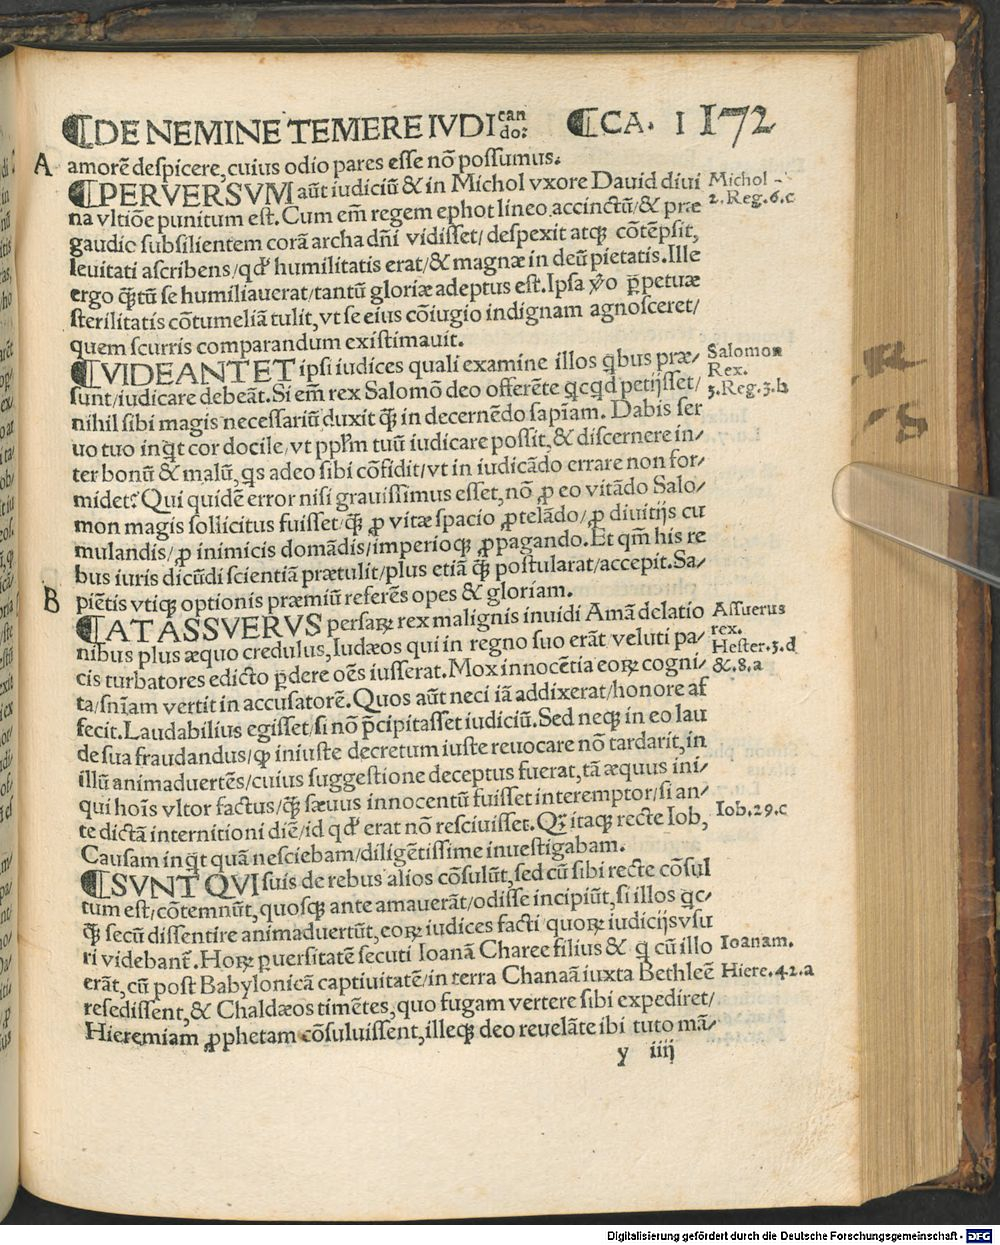 ¶DE NEMINE TEMERE IVDI can do: ¶CA. I 172
A amorē despicere, cuius odio pares esse nō possumus.
¶PERVERSVM aūt iudiciū & in Michol vxore Dauid diui
Michol
na vltiōe punitum est. Cum em̄ regem ephot lineo accinctū/& præ
2. Reg. 6. c
gaudio subsilientem corā archa dn̄i vidisset/ despexit atqꝫ cōtēpsit,
leuitati ascribens/qđ humilitatis erat/& magnæ in deū pietatis. Ille
ergo qꝫtū se humiliauerat/tantū gloriæ adeptus est. Ipsa ꝟo ꝑpetuæ
sterilitatis cōtumeliā tulit, vt se eius cōiugio indignam agnosceret/
quem scurris comparandum existimauit.
¶VIDEANT ET ipsi iudices quali examine illos qbus præ/
Salomon
Rex.
sunt/iudicare debeāt. Si em̄ rex Salomō deo offerēte qcqd petijsset/
3. Reg. 3. b
nihil sibi magis necessariū duxit qꝫ in decernēdo sapīam. Dabis ser
uo tuo inqt cor docile, vt pplm̄ tuū iudicare possit, & discernere in/
ter bonū & malū, qs adeo sibi cōfidit/vt in iudicādo errare non for/
midet? Qui quidē error nisi grauissimus esset, nō ꝓ eo vitādo Salo/
mon magis sollicitus fuisset/qꝫ ꝓ vitæ spacio ꝓtelādo/ꝓ diuitijs cu
mulandis/ꝓ inimicis domādis/imperioqꝫ ꝓpagando. Et qm̄ his re
bus iuris dicūdi scientiā prætulit/plus etiā qꝫ postularat/accepit. Sa/
B piētis vtiqꝫ optionis præmiū referēs opes & gloriam.
¶AT ASSVERVS persaꝝ rex malignis inuidi Amā delatio
Assuerus
rex.
nibus plus æquo credulus, Iudæos qui in regno suo erāt veluti pa/
Hester. 3. d
cis turbatores edicto ꝑdere oēs iusserat. Mox innocētia eoꝝ cogni/
&. 8. a
ta/snīam vertit in accusatorē. Quos aūt neci iā addixerat/honore af
fecit. Laudabilius egisset/si nō p̄cipitasset iudiciū. Sed neqꝫ in eo lau
de sua fraudandus/ꝙ iniuste decretum iuste reuocare nō tardarit, in
illū animaduertēs/cuius suggestione deceptus fuerat, tā æquus ini/
qui hoīs vltor factus/qꝫ sæuus innocentū fuisset interemptor/si an/
te dictā internitioni diē/id qđ erat nō resciuisset. Qꝫ itaqꝫ recte Iob,
Iob. 29. c
Causam inqt quā nesciebam/diligētissime inuestigabam.
¶SVNT QVI suis de rebus alios cōsulūt, sed cū sibi recte cōsul
tum est/cōtemnūt, quosqꝫ ante amauerāt/odisse incipiūt, si illos qc/
qꝫ secū dissentire animaduertūt, eoꝝ iudices facti quoꝝ iudicijs vsu
ri videbant̄. Hoꝝ ꝑuersitatē secuti Ioanā Charee filius & q cū illo
Ioanam.
erāt, cū post Babylonicā captiuitatē/in terra Chanaā iuxta Bethleē
Hiere. 42. a
resedissent, & Chaldæos timētes, quo fugam vertere sibi expediret/
Hieremiam ꝓphetam cōsuluissent, illeqꝫ deo reuelāte ibi tuto mā/
y iiij
Digitalisierung gefördert durch die Deutsche Forschungsgemeinschaft - DFG